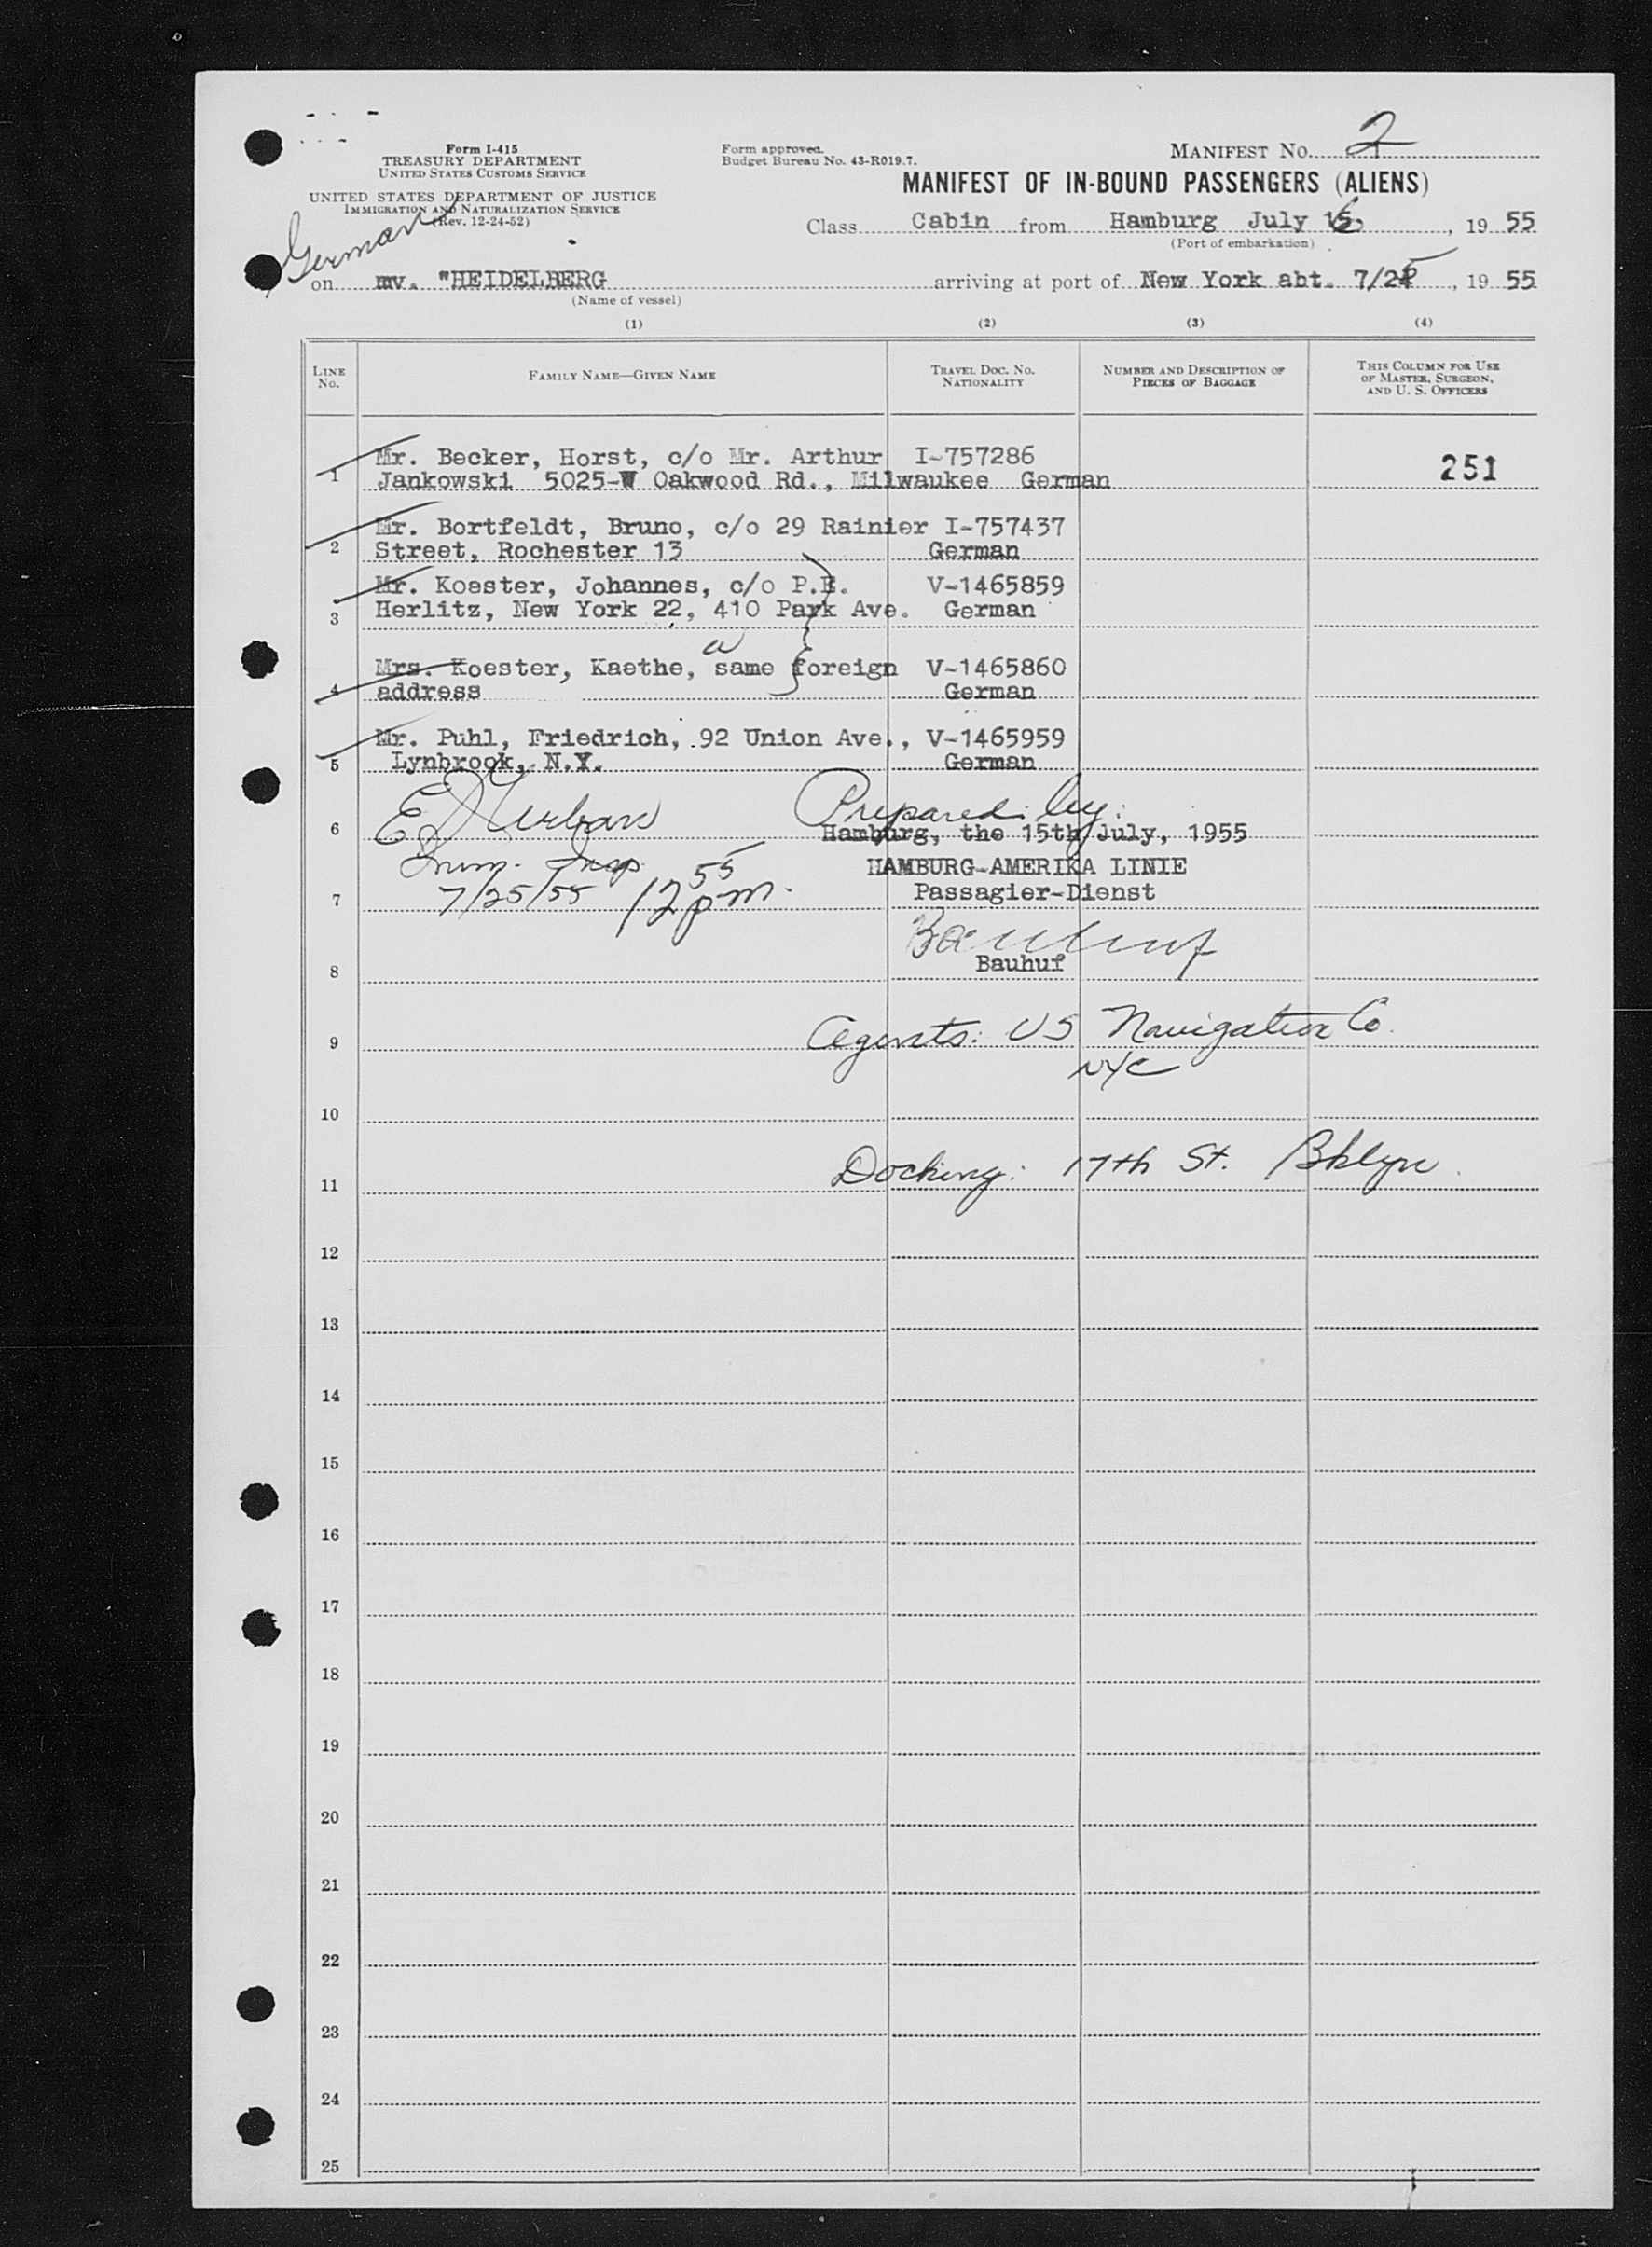 Form I-415
TREASURY DEPARTMENT
UNITED STATES CUSTOMS SERVICE
UNITED STATES DEPARTMENT OF JUSTICE
IMMIGRATION AND NATURALIZATION SERVICE
(Rev. 12-24-52)
Form approved.
Budget Bureau No. 43-R019.7.
MANIFEST NO. 2
MANIFEST OF IN-BOUND PASSENGERS (ALIENS)
Class Cabin from Hamburg July 16, 1955
(Port of embarkation)
German
on mv. "HEIDELBERG arriving at port of New York abt. 7/25, 1955
(Name of vessel)
(1) (2) (3) (4)
LINE NO. FAMILY NAME—GIVEN NAME TRAVEL DOC. NO. NATIONALITY NUMBER AND DESCRIPTION OF PIECES OF BAGGAGE THIS COLUMN FOR USE OF MASTER, SURGEON, AND U. S. OFFICERS
Mr. Becker, Horst, c/o Mr. Arthur I-757286
1 Jankowski 5025-W Oakwood Rd., Milwaukee German 251
Mr. Bortfeldt, Bruno, c/o 29 Rainier I-757437
2 Street, Rochester 13 German
Mr. Koester, Johannes, c/o P.E. V-1465859
3 Herlitz, New York 22, 410 Park Ave. German
Mrs. Koester, Kaethe, same foreign V-1465860
4 address German
Mr. Puhl, Friedrich, 92 Union Ave., V-1465959
5 Lynbrook, N.Y. German
Prepared by:
6 Hamburg, the 15th July, 1955
Imm. Insp. HAMBURG-AMERIKA LINIE
7 7/25/55 12 55 pm. Passagier-Dienst
Bauhuf
8 Bauhuf
9 Agents: US Navigation Co.
NYC
10
11 Docking: 17th St. Bklyn.
12
13
14
15
16
17
18
19
20
21
22
23
24
25